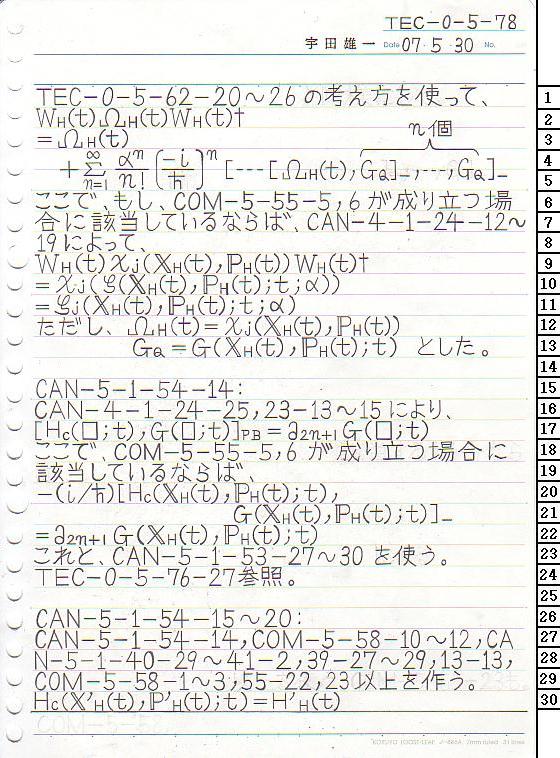 TEC-0-5-78
宇田雄一 Date 07・5・30 No.
TEC-0-5-62-20～26の考え方を使って、
W_H(t)Ω_H(t)W_H(t)†
=Ω_H(t)
n個
+Σ_{n=1}^{∞} α^n/n! (-i/ħ)^n [---[Ω_H(t),G_Q]_-,---,G_Q]_-
ここで、もし、COM-5-55-5,6が成り立つ場
合に該当しているならば、CAN-4-1-24-12～
19によって、
W_H(t)χ_j(X_H(t),P_H(t))W_H(t)†
=χ_j(𝒢(X_H(t),P_H(t);t;α))
=𝒢_j(X_H(t),P_H(t);t;α)
ただし、Ω_H(t)=χ_j(X_H(t),P_H(t))
G_Q=G(X_H(t),P_H(t);t) とした。
CAN-5-1-54-14:
CAN-4-1-24-25,23-13～15により、
[H_C(□;t),G(□;t)]_PB=∂_{2n+1}G(□;t)
ここで、COM-5-55-5,6が成り立つ場合に
該当しているならば、
-(i/ħ)[H_C(X_H(t),P_H(t);t),
G(X_H(t),P_H(t);t)]_-
=∂_{2n+1}G(X_H(t),P_H(t);t)
これと、CAN-5-1-53-27～30を使う。
TEC-0-5-76-27参照。
CAN-5-1-54-15～20:
CAN-5-1-54-14,COM-5-58-10～12,CA
N-5-1-40-29～41-2,39-27～29,13-13,
COM-5-58-1～3,55-22,23以上を使う。
H_C(X'_H(t),P'_H(t);t)=H'_H(t)
1
2
3
4
5
6
7
8
9
10
11
12
13
14
15
16
17
18
19
20
21
22
23
24
25
26
27
28
29
30